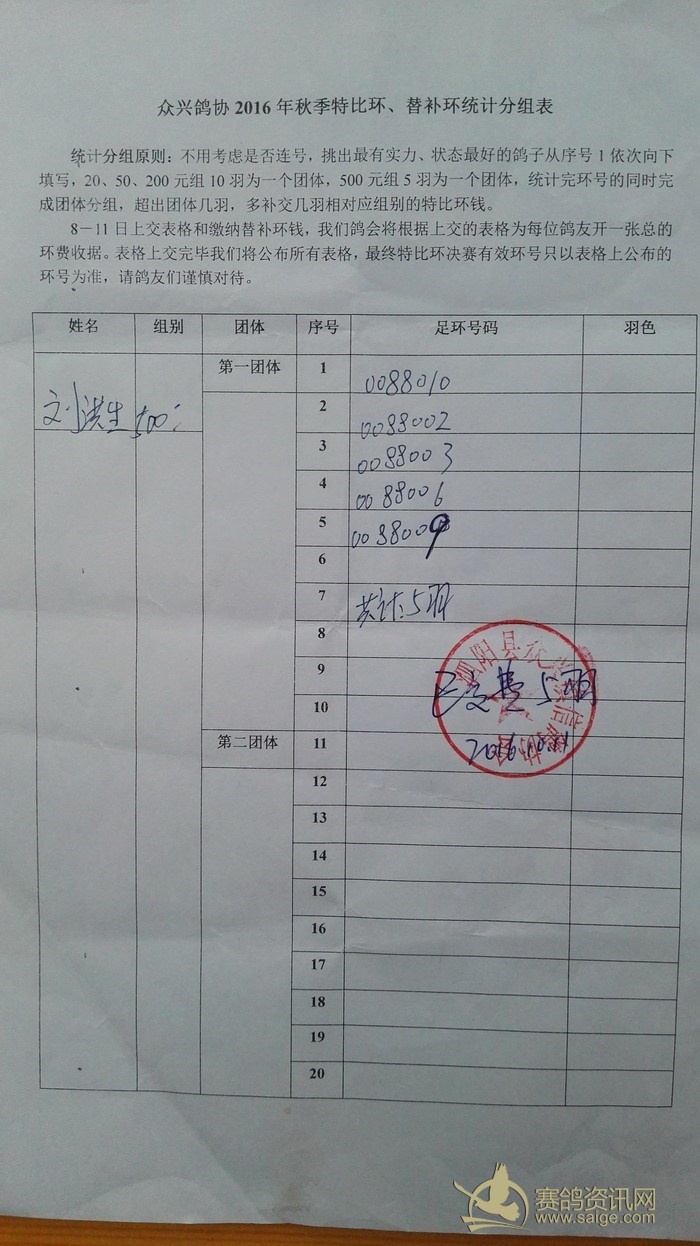 众兴鸽协 2016 年秋季特比环、替补环统计分组表
统计分组原则：不用考虑是否连号，挑出最有实力、状态最好的鸽子从序号 1 依次向下
填写，20、50、200 元组 10 羽为一个团体，500 元组 5 羽为一个团体，统计完环号的同时完
成团体分组，超出团体几羽，多补交几羽相对应组别的特比环钱。
8－11 日上交表格和缴纳替补环钱，我们鸽会将根据上交的表格为每位鸽友开一张总的
环费收据。表格上交完毕我们将公布所有表格，最终特比环决赛有效环号只以表格上公布的
环号为准，请鸽友们谨慎对待。
姓名 组别 团体 序号 足环号码 羽色
第一团体 1 0088010
刘洪生 500
2 0088002
3 0088003
4 0088006
5 0088009
6
7 共计：5羽
8
9 已交费 5羽
10
第二团体 11 2016.10.11
泗阳县众兴信鸽协会
12
13
14
15
16
17
18
19
20
赛鸽资讯网
www.saige.com